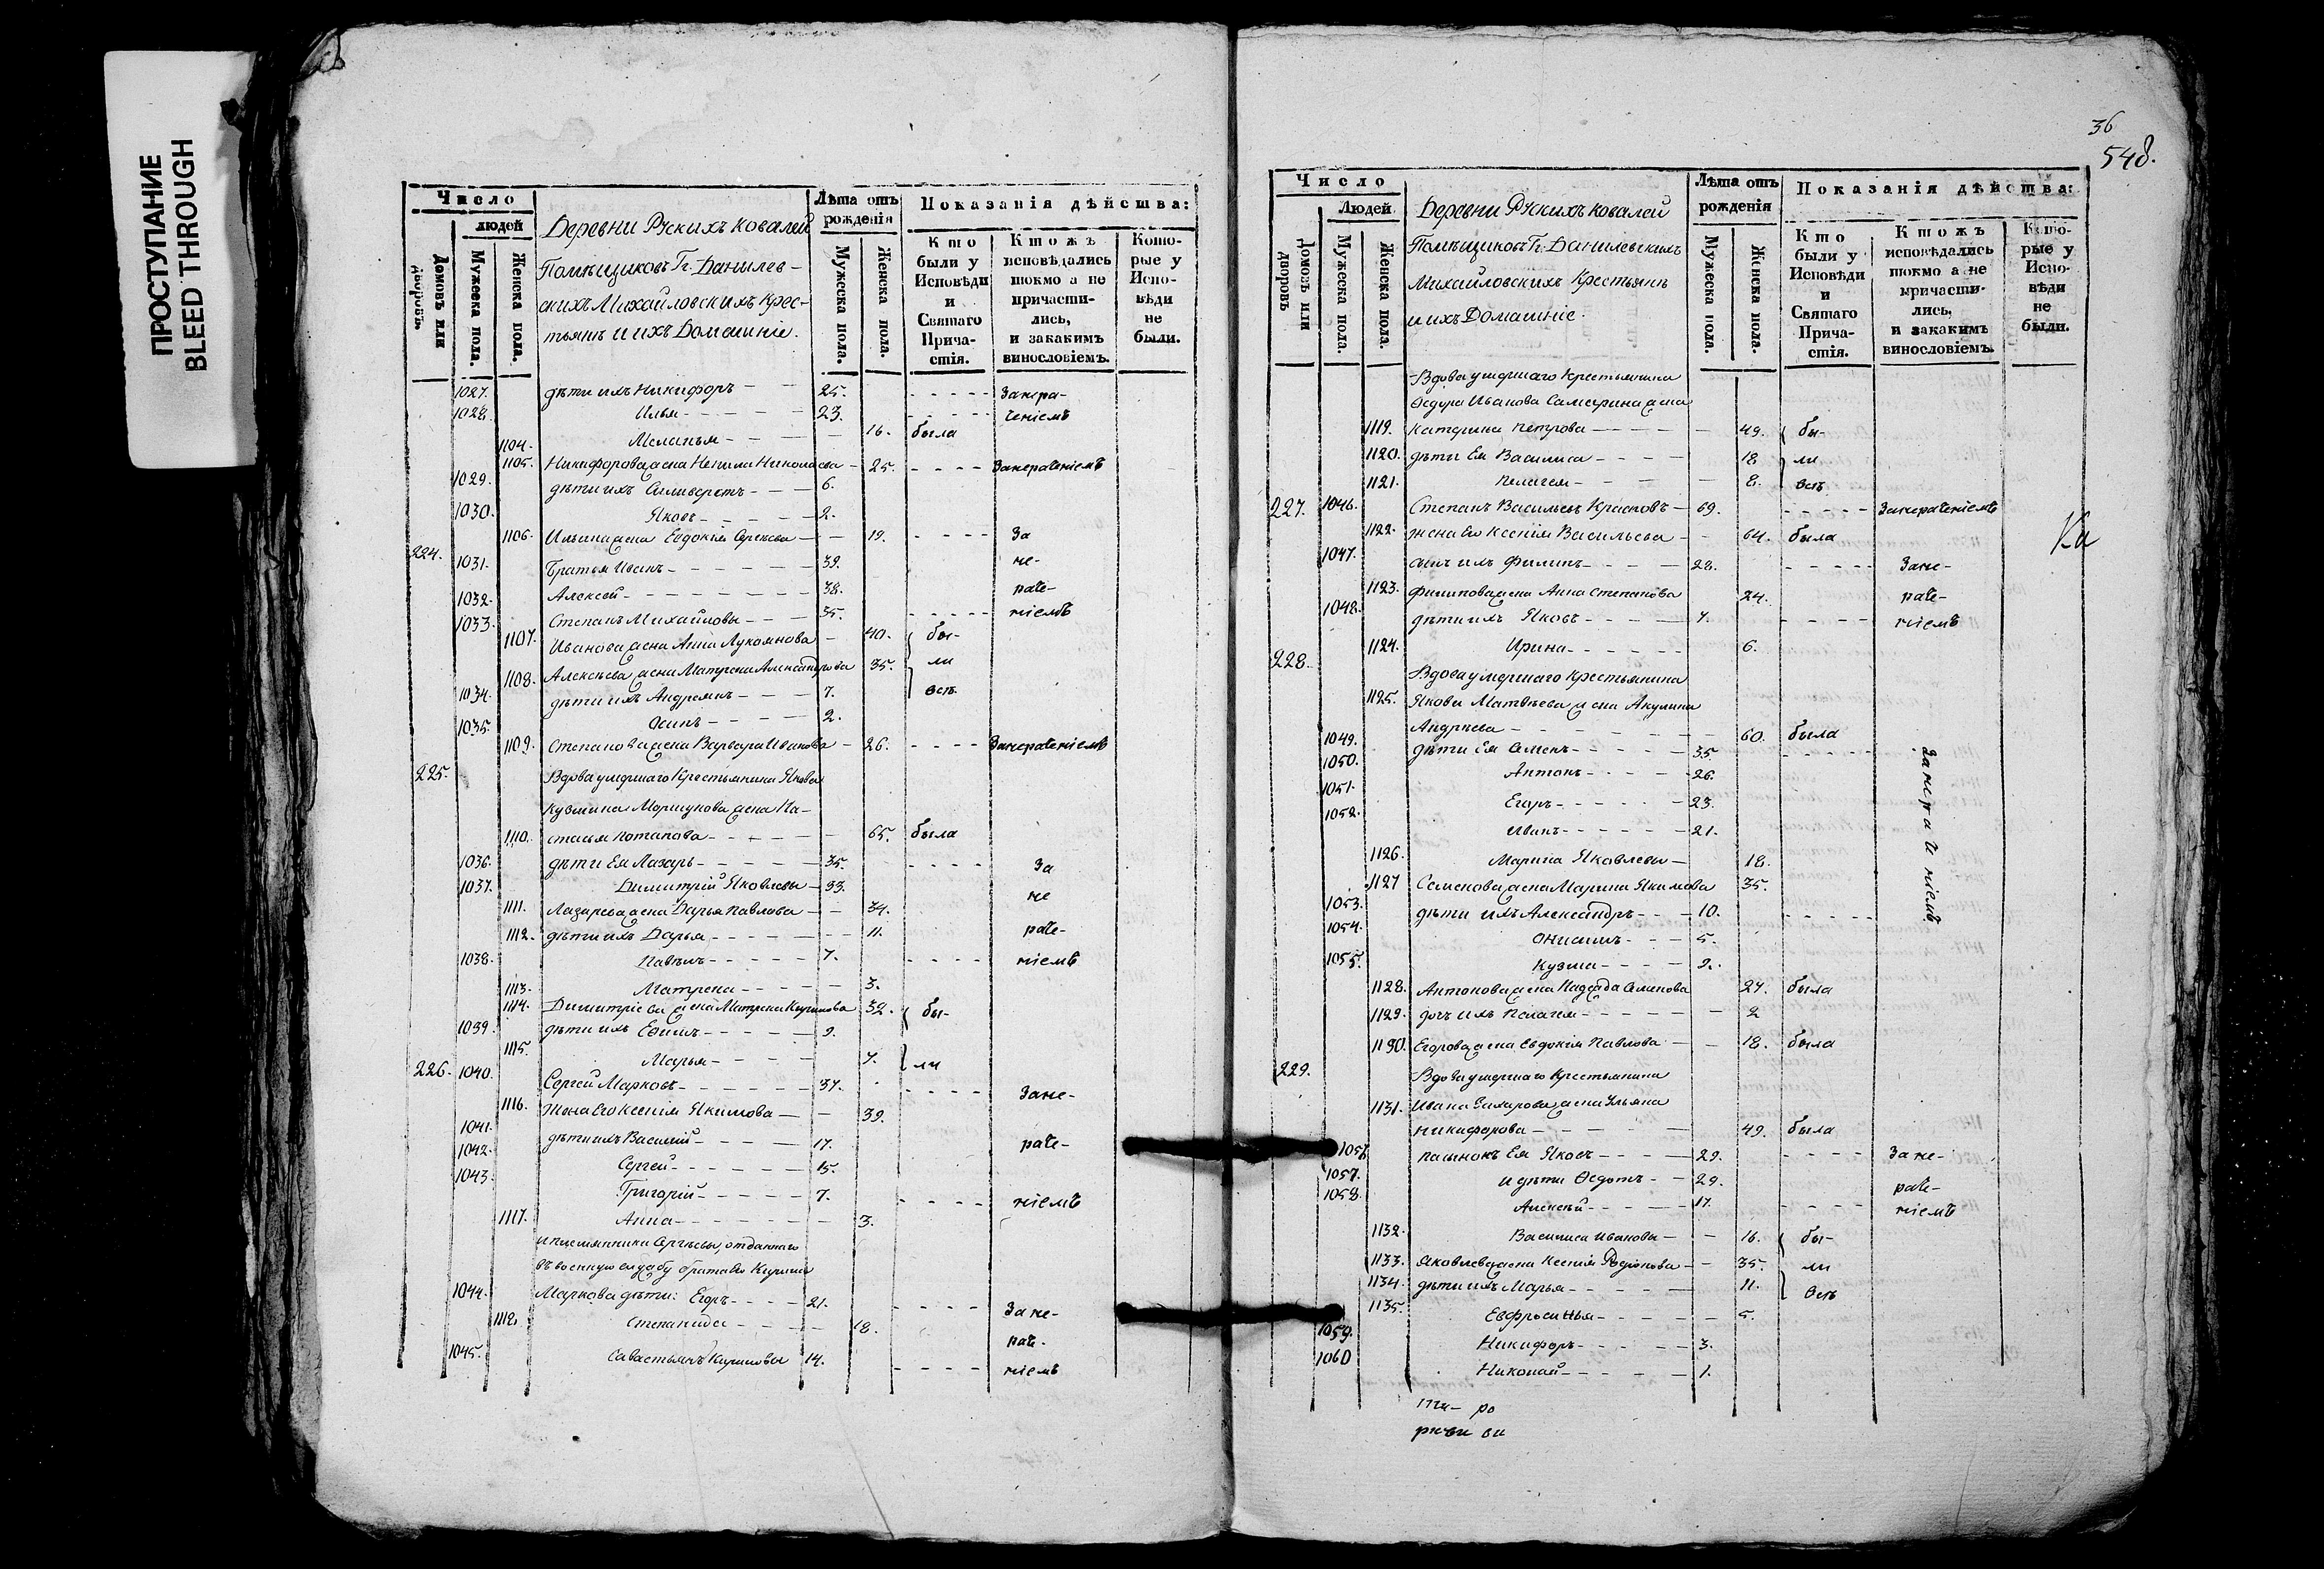 ПРОСТУПАНИЕ
BLEED THROUGH
Число
людей
Домовъ или дворовъ.
Мужеска пола.
Женска пола.
Деревни Рускихъ Ковалей
Помѣщиковъ Гг. Данилев-
скихъ Михайловскихъ Крес-
тьянъ и ихъ Домашніе.
Лѣта отъ рожденія
Мужеска пола.
Женска пола.
Показанія дѣйства:
Кто были у Исповѣди и Святаго Прича-стія.
Ктожъ исповѣдались токмо а не причасти-лись, и закакимъ винословіемъ.
Кото-рые у Испо-вѣди не были.
1027. дѣти ихъ Никифоръ 25. Занера-
1028. Илья 23. ченіемъ
1104. Меланья 16. была
1105. Никифорова жена Ненила Николаева 25. Занераченіемъ
1029. дѣти ихъ Силиверстъ 6.
1030. Яковъ 2.
1106. Ильина жена Евдокія Сергѣева 19. За
224. 1031. Братья Иванъ 39. не-
1032. Алексей 38. раче-
1033. Степанъ Михайловы 35. ніемъ
1107. Иванова жена Анна Лукоянова 40. бы-
1108. Алексѣева жена Матрена Александрова 35. ли
1034. дѣти ихъ Андреянъ 7. всѣ
1035. Осипъ 2.
1109. Степанова жена Варвара Иванова 26. Занераченіемъ
225. Вдова умершаго Крестьянина Якова
Кузмина Моршукова жена На-
1110. стасья Потапова 65. была
1036. дѣти Ея Лазарь 35. За
1037. Димитрій Яковлевы 33. не
1111. Лазарева жена Дарья Павлова 34.
1112. дѣти ихъ Дарья 11. раче-
1038. Павелъ 7. ніемъ
1113. Матрена 3.
1114. Димитріева жена Матрена Кирилова 32. бы-
1039. дѣти ихъ Ефимъ 9.
1115. Марья 7. ли
226. 1040. Сергей Марковъ 37. Зане-
1116. Жена Его Ксенія Якимова 39.
1041. дѣти ихъ Василій 17. раче-
1042. Сергей 15.
1043. Григорій 7. ніемъ
1117. Анна 3.
и племянники Сергѣевы, отданнаго
въ военную службу брата Его Кирилы
1044. Маркова дѣти: Егоръ 21. Зане-
1118. Степанида 18. раче-
1045. Савастьянъ Кириловы 14. ніемъ
36
548.
Число
Людей
Домовъ или дворовъ
Мужеска пола.
Женска пола.
Деревни Рускихъ Ковалей
Помѣщиковъ Гг. Данилевскихъ
Михайловскихъ Крестьянъ
и ихъ Домашніе.
Лѣта отъ рожденія
Мужеска пола.
Женска пола.
Показанія дѣйства:
Кто были у Исповѣди и Святаго Прича-стія.
Ктожъ исповѣдались токмо а не причасти-лись, и закакимъ винословіемъ.
Кото-рые у Испо-вѣди не были.
Вдова умершаго Крестьянина
Ѳедора Иванова жена
1119. Катерина Петрова 49. бы-
1120. дѣти Ея Василиса 18 ли
1121. Пелагея 8. всѣ
227. 1046. Степанъ Васильевъ 69. Занераченіемъ
1122. жена Его Ксенія Васильева 64. была
Ка
1047. сынъ ихъ Филипъ 28. Зане-
1123. Филипова жена Анна Степанова 24. раче-
1048. дѣти ихъ Яковъ 7. ніемъ
1124. Ирина 6.
228. Вдова умершаго Крестьянина
1125. Якова Матвѣева жена Акулина
Андрѣева 60. была
1049. дѣти Ея Семенъ 35.
1050. Антонъ 26. Занераченіемъ
1051. Егоръ 23.
1052. Иванъ 21.
1126. Марина Яковлевы 18.
1127 Семенова жена Марина Якимова 35.
1053. дѣти ихъ Александръ 10.
1054. Онисимъ 5.
1055. Кузма 2.
1128. Антонова жена Надежда Семенова 24. была
1129. дочь ихъ Пелагея 2
1130. Егорова жена Евдокія Павлова 18. была
229. Вдова умершаго Крестьянина
1131. Ивана Захарова жена Ульяна
Никифорова 49. была
1057 пасынокъ Ея Яковъ 29. Зане-
1057. и дѣти Ѳедотъ 29. раче-
1058. Алексѣй 17. ніемъ
1132. Василиса Ивановы 16. бы-
1133. Яковлева жена Ксенія Родіонова 35. ли
1134. дѣти ихъ Марья 11. всѣ
1135. Евфросинья 5.
1059. Никифоръ 3.
1060 Николай 1.